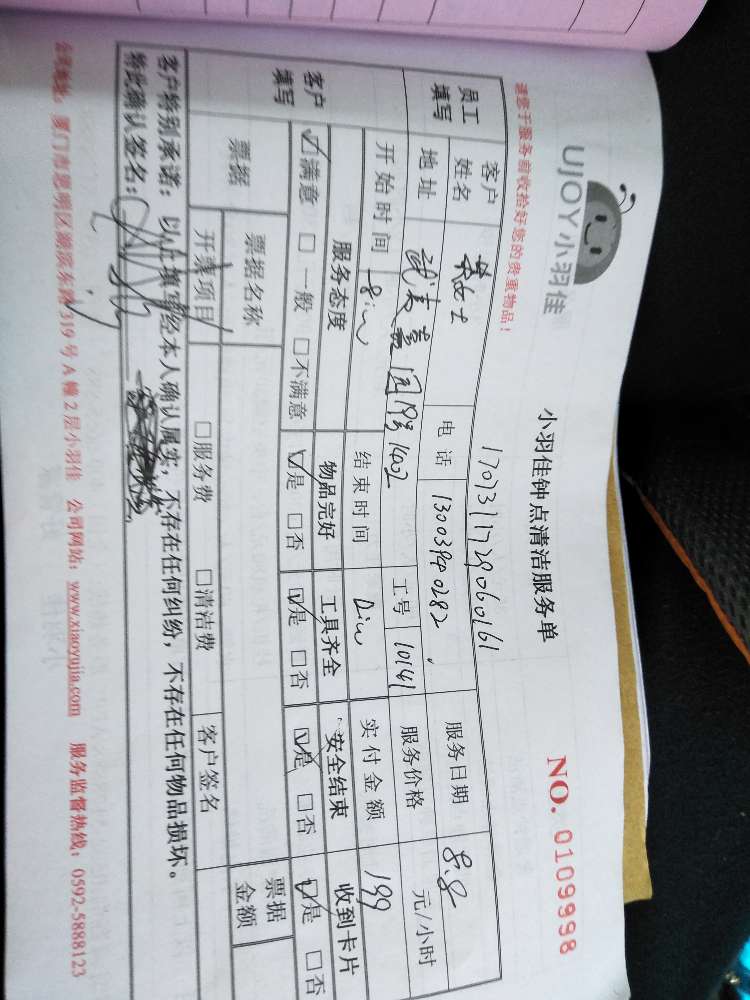 UJOY小羽佳
小羽佳钟点清洁服务单
NO. 0109998
请您于服务前收拾好您的贵重物品！
员工填写
客户姓名
女士
电话
13003940282
服务日期
8.8
地址
园19号1402
工号
10141
服务价格
元/小时
开始时间
结束时间
实付金额
199
客户填写
服务态度
物品完好
工具齐全
安全结束
收到卡片
☑满意 □一般 □不满意
☑是 □否
☑是 □否
☑是 □否
☑是 □否
票据
票据名称
票据金额
开票项目
□服务费
□清洁费
客户签名
客户特别承诺：以上填写经本人确认属实，不存在任何纠纷，不存在任何物品损坏。
特此确认签名：
公司地址：厦门市思明区湖滨东路319号A幢2层小羽佳 公司网站：www.xiaoyujia.com 服务监督热线：0592-5888123